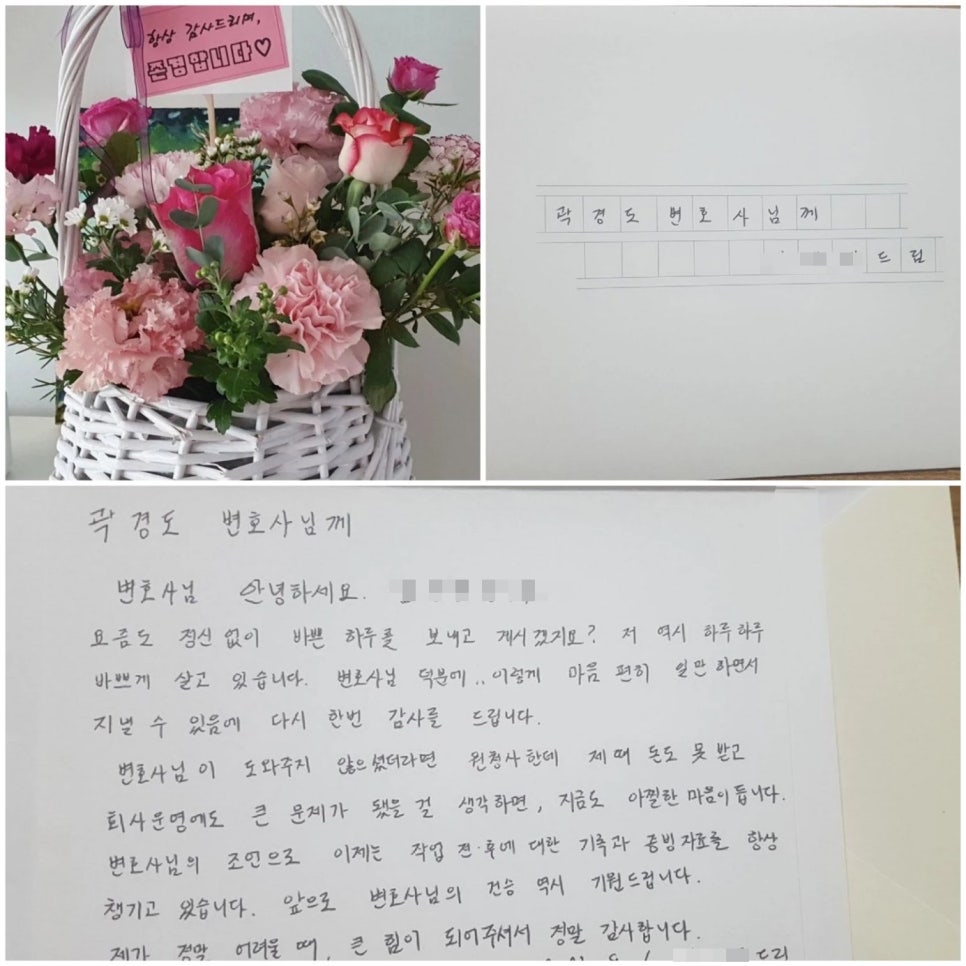 항상 감사드리며,
존경합니다♡
곽경도변호사님께
드림
곽경도 변호사님께
변호사님 안녕하세요.
요즘도 정신없이 바쁜 하루를 보내고 계시겠지요? 저 역시 하루하루
바쁘게 살고 있습니다. 변호사님 덕분에.. 이렇게 마음 편히 일만 하면서
지낼 수 있음에 다시 한번 감사를 드립니다.
변호사님이 도와주지 않으셨더라면 원청사한테 제때 돈도 못 받고
회사운영에도 큰 문제가 됐을 걸 생각하면, 지금도 아찔한 마음이 듭니다.
변호사님의 조언으로 이제는 작업 전·후에 대한 기록과 증빙자료를 항상
챙기고 있습니다. 앞으로 변호사님의 건승 역시 기원드립니다.
제가 정말 어려울 때, 큰 힘이 되어주셔서 정말 감사합니다.
드림